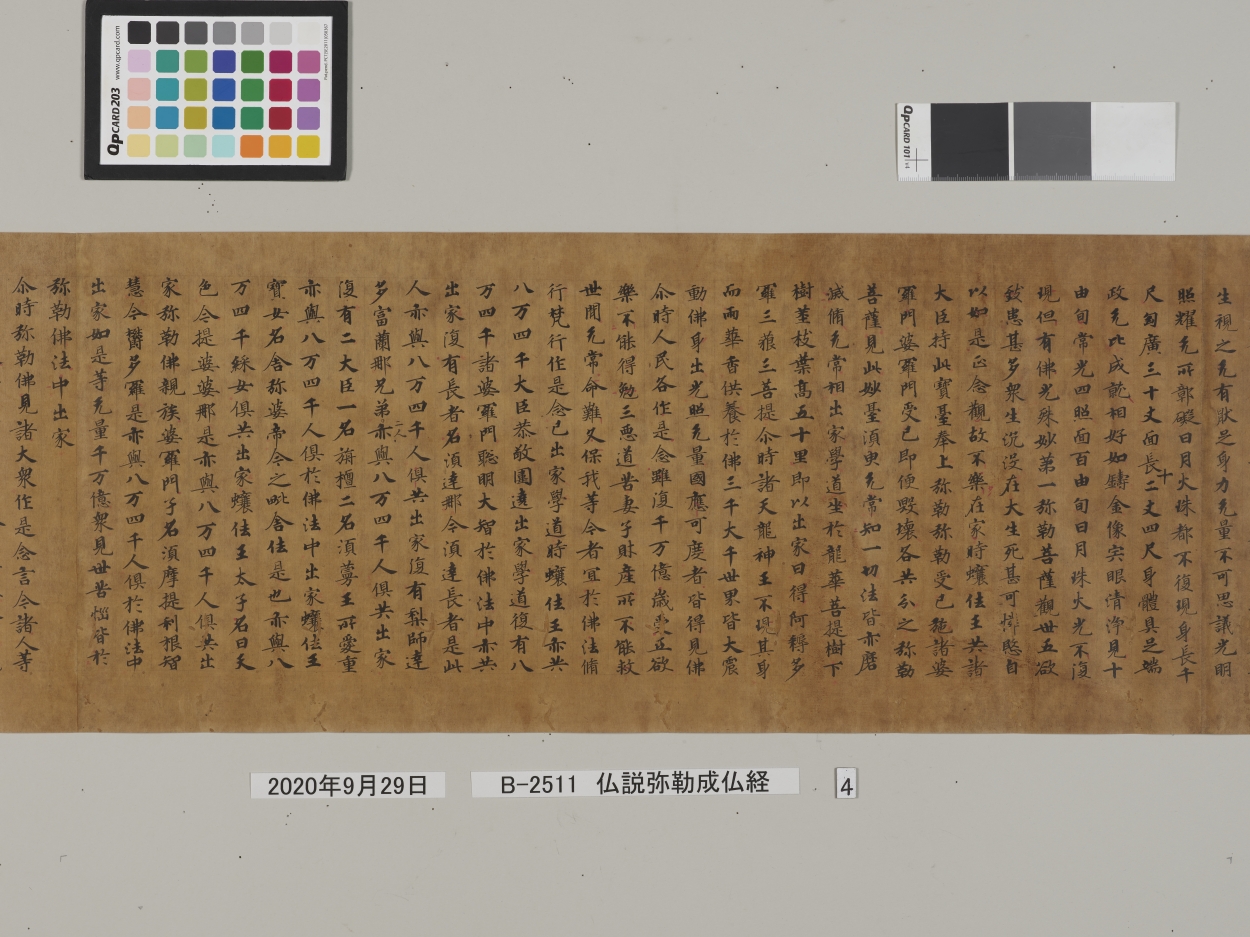 生視之无有猒足身力无量不可思議光明
照耀无所郭礙日月火珠都不復現身長千
尺匈廣三十丈面長十二丈四尺身體具足端
政无比成就相好如鑄金像宍眼清淨見十
由旬常光四照面百由旬日月珠火光不復
現但有佛光殊妙第一弥勒菩薩觀世五欲
致患甚多衆生沉没在大生死甚可憐愍自
以如是正念觀故不樂在家時蠰佉王共諸
大臣持此寶臺奉上弥勒弥勒受已施諸婆
羅門婆羅門受已即便毀壞各共分之弥勒
菩薩見此妙臺須臾无常知一切法皆亦磨
滅脩无常相出家學道坐於龍華菩提樹下
樹莖枝葉高五十里即以出家日得阿耨多
羅三藐三菩提尒時諸天龍神王不現其身
而雨華香供養於佛三千大千世界皆大震
動佛身出光照无量國應可度者皆得見佛
尒時人民各作是念雖復千万億歲受五欲
樂不能得勉三惡道苦妻子財產所不能救
世間无常命難久保我等今者宜於佛法脩
行梵行作是念已出家學道時蠰佉王亦共
八万四千大臣恭敬圍遶出家學道復有八
万四千諸婆羅門聡明大智於佛法中亦共
出家復有長者名須達那今須達長者是此
人亦與八万四千人俱共出家復有梨師達
多富蘭那兄弟二人亦與八万四千人俱共出家
復有二大臣一名旃檀二名須蔓王所愛重
亦與八万四千人俱於佛法中出家蠰佉王
寶女名舍弥婆帝今之毗舍佉是也亦與八
万四千綵女俱共出家蠰佉王太子名曰天
色今提婆婆那是亦與八万四千人俱共出
家弥勒佛親族婆羅門子名須摩提利根智
慧今鬱多羅是亦與八万四千人俱於佛法中
出家如是等无量千万億衆見世苦惱皆於
弥勒佛法中出家
尒時弥勒佛見諸大衆作是念言今諸人等
QpCARD 203
www.qpcard.com
QpCARD 101
2020年9月29日
B-2511 仏説弥勒成仏経
4